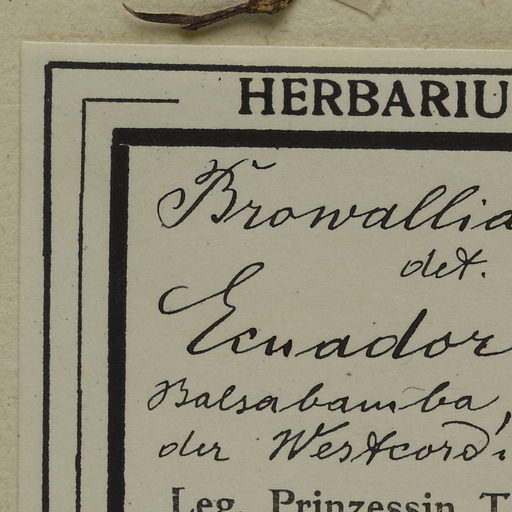 HERBARIU
Browallia
det.
Ecuador
Balsabamba,
der Westcordi
Leg. Prinzessin T